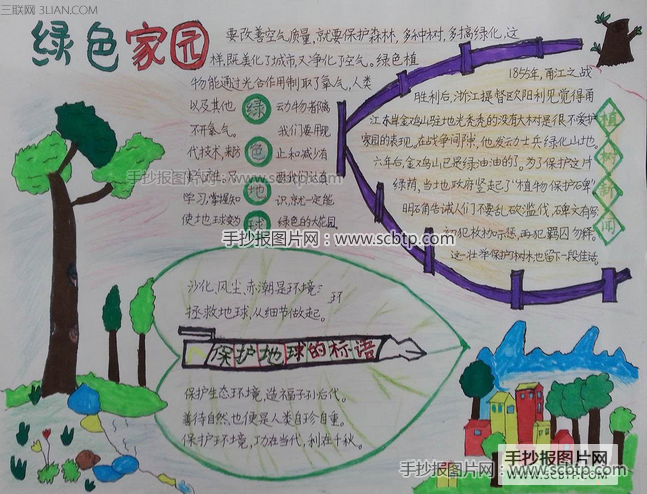 三联网 3LIAN.COM
绿色家园
要改善空气质量,就要保护森林,多种树,多搞绿化,这
样,既美化了城市,又净化了空气。绿色植
物能通过光合作用制取了氧气,人类
以及其他 动物都离
不开氧气。 我们要用现
代技术,来防 止和减少有
学习,掌握知 识,就一定能
使地球变为 绿色的大花园。
绿色地球
1855年,甬江之战
胜利后,浙江提督欧阳利见觉得甬
江东岸金鸡山驻地光秃秃的没有大树是很不爱护
家园的表现。在战争间隙,他发动士兵绿化山地。
六年后,金鸡山已是绿油油的了。为了保护这片
绿荫,当地政府竖起了“植物保护碑”
明石角告诫人们不要乱砍滥伐,碑文有
初犯枚枷示惩,再犯羁囚勿释。
这一壮举保护了树木也留下一段佳话。
植树新
手抄报图片网:www.scbtp.com
沙化、风尘、赤潮是环境 环
拯救地球,从细节做起。
保护地球的标语
保护生态环境,造福子孙后代。
善待自然,也便是人类自珍自重。
保护环境,功在当代,利在千秋。
手抄报图片网:www.scbtp.com
手抄报图片网
www.scbtp.com